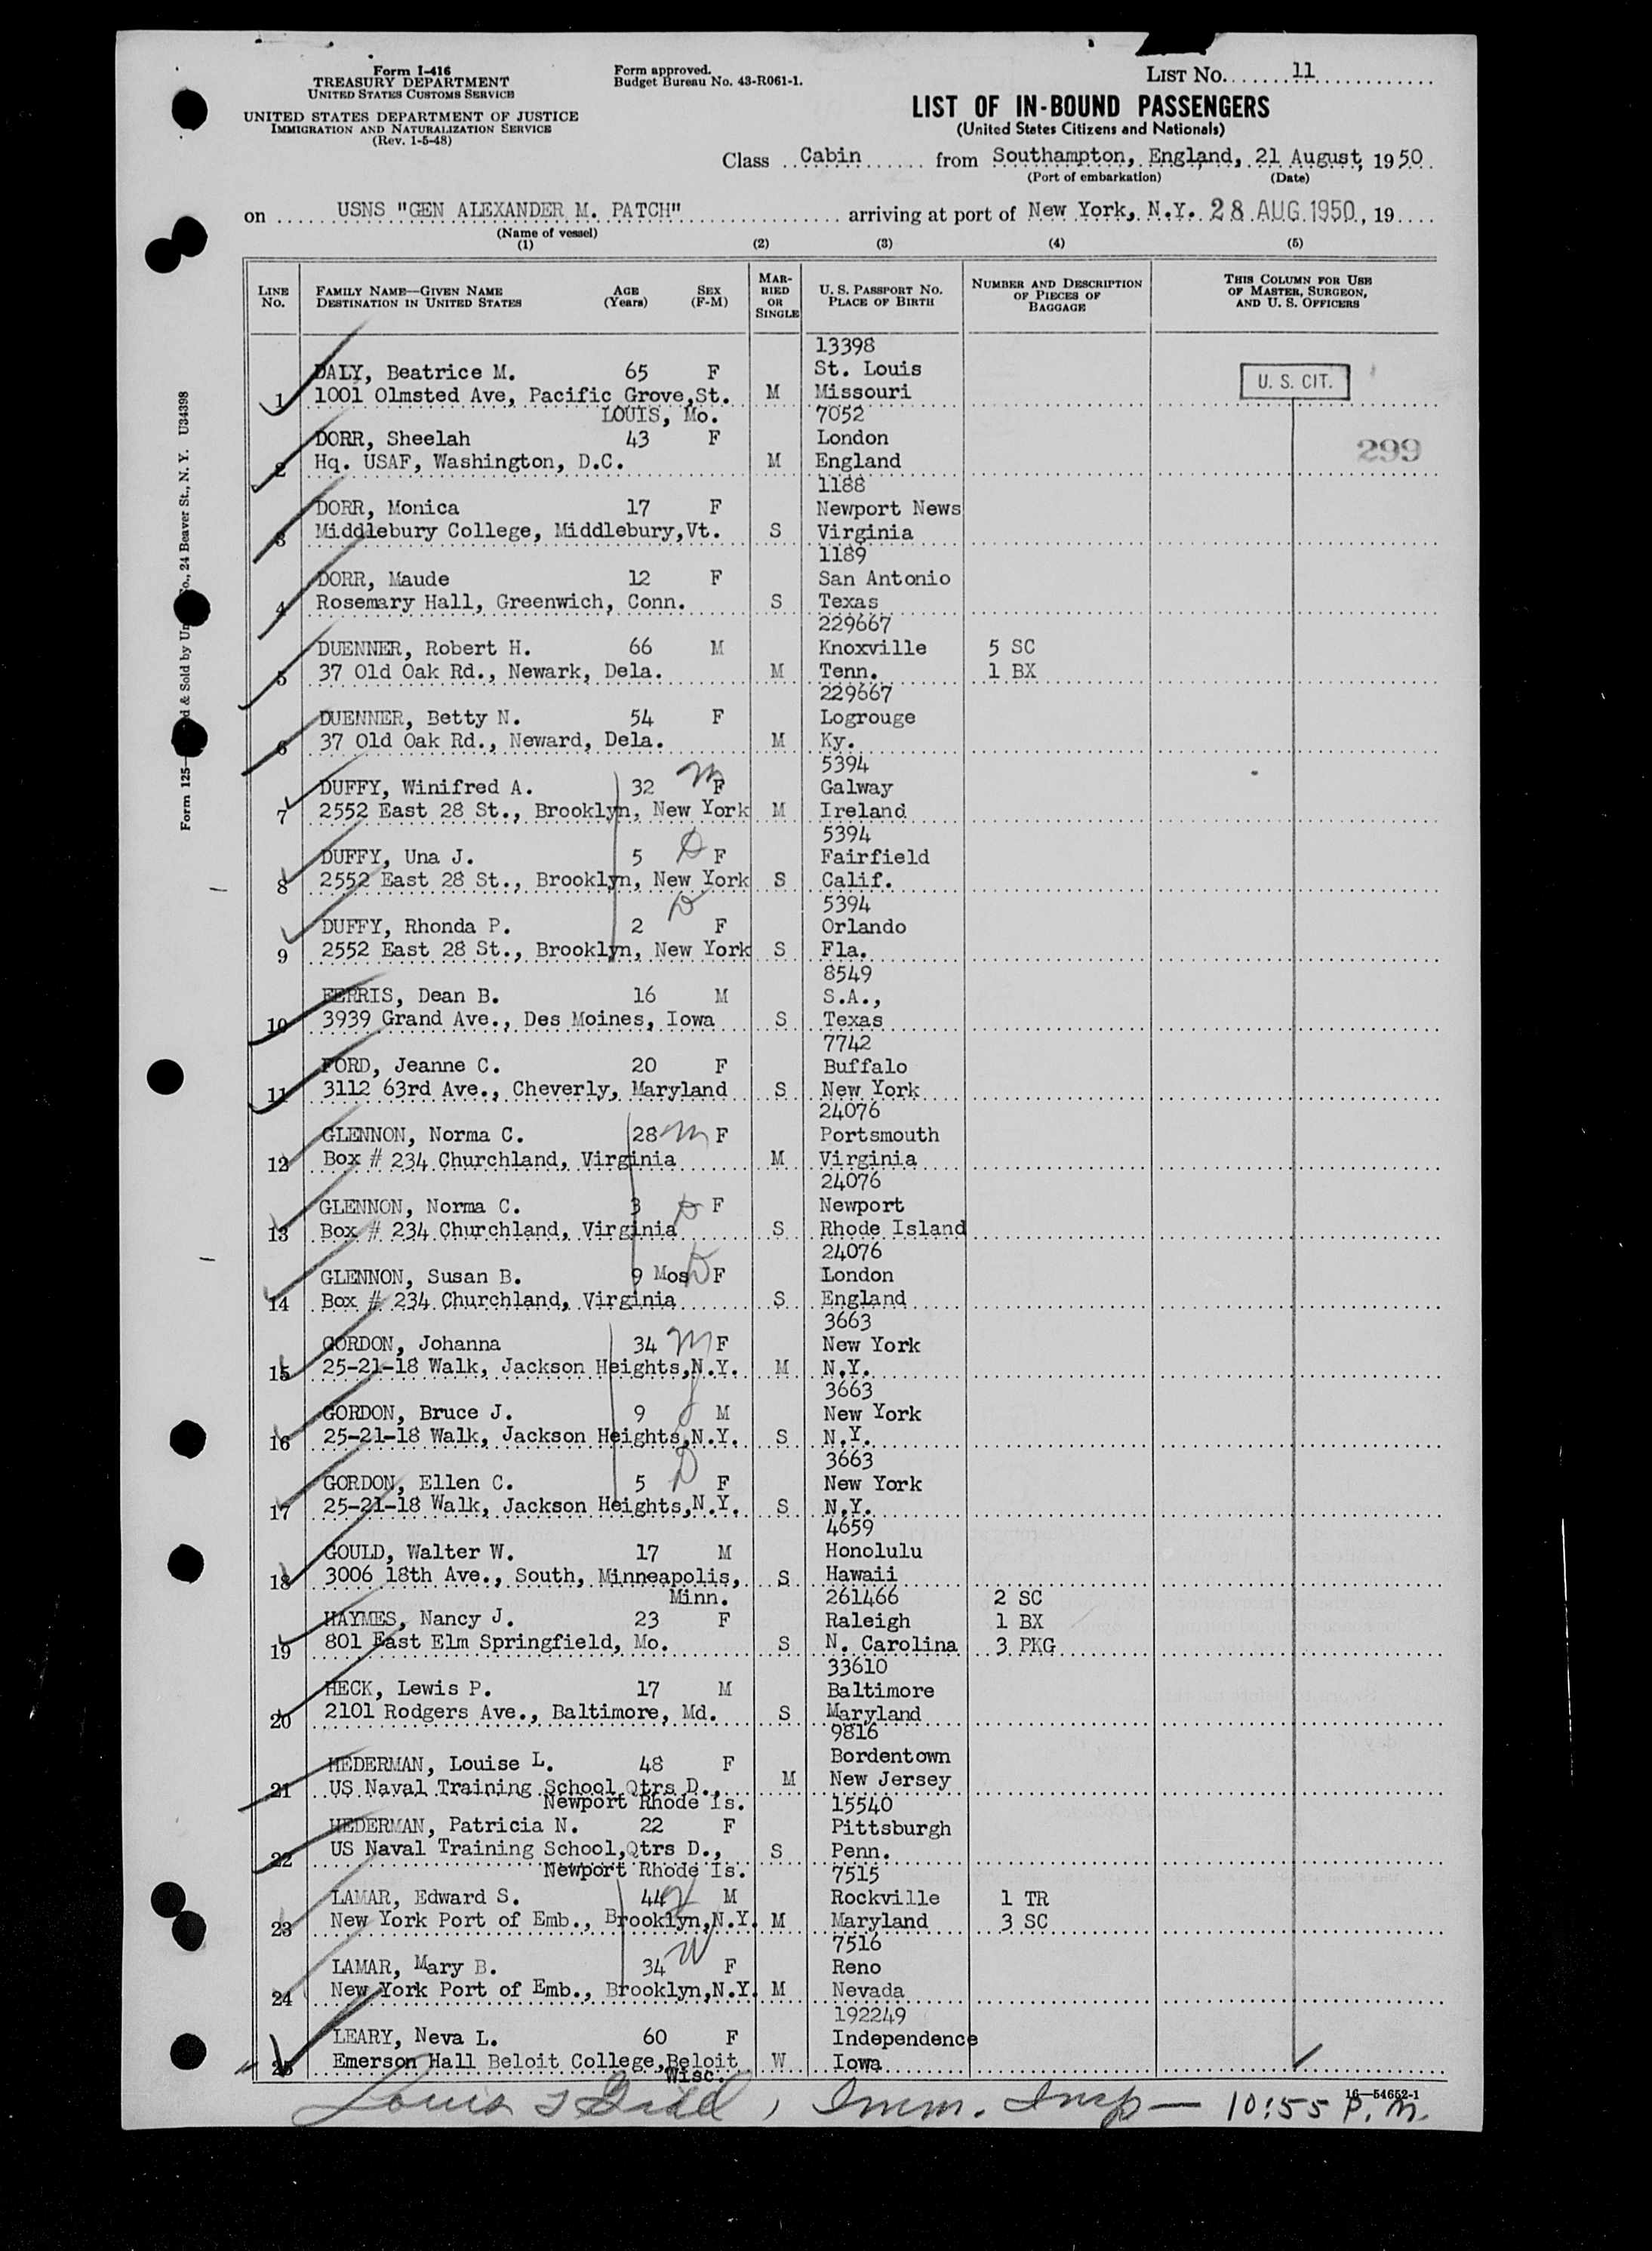 Form I-416
TREASURY DEPARTMENT
UNITED STATES CUSTOMS SERVICE
UNITED STATES DEPARTMENT OF JUSTICE
IMMIGRATION AND NATURALIZATION SERVICE
(Rev. 1-5-48)
Form approved.
Budget Bureau No. 43-R061-1.
LIST NO. 11
LIST OF IN-BOUND PASSENGERS
(United States Citizens and Nationals)
Class Cabin from Southampton, England, 21 August, 1950
(Port of embarkation) (Date)
on USNS "GEN ALEXANDER M. PATCH" arriving at port of New York, N.Y. 28 AUG 1950, 19
(Name of vessel)
(1) (2) (3) (4) (5)
LINE NO. FAMILY NAME—GIVEN NAME DESTINATION IN UNITED STATES AGE (Years) SEX (F-M) MARRIED OR SINGLE U. S. PASSPORT NO. PLACE OF BIRTH NUMBER AND DESCRIPTION OF PIECES OF BAGGAGE THIS COLUMN FOR USE OF MASTER, SURGEON, AND U. S. OFFICERS
13398
DALY, Beatrice M. 65 F St. Louis U. S. CIT.
1 1001 Olmsted Ave, Pacific Grove, St. M Missouri
LOUIS, Mo. 7052
DORR, Sheelah 43 F London 299
2 Hq. USAF, Washington, D.C. M England
1188
DORR, Monica 17 F Newport News
3 Middlebury College, Middlebury, Vt. S Virginia
1189
DORR, Maude 12 F San Antonio
4 Rosemary Hall, Greenwich, Conn. S Texas
229667
DUENNER, Robert H. 66 M Knoxville 5 SC
5 37 Old Oak Rd., Newark, Dela. M Tenn. 1 BX
229667
DUENNER, Betty N. 54 F Logrouge
6 37 Old Oak Rd., Neward, Dela. M Ky.
5394
DUFFY, Winifred A. 32 M F Galway
7 2552 East 28 St., Brooklyn, New York M Ireland
5394
DUFFY, Una J. 5 D F Fairfield
8 2552 East 28 St., Brooklyn, New York S Calif.
5394
DUFFY, Rhonda P. 2 D F Orlando
9 2552 East 28 St., Brooklyn, New York S Fla.
8549
FERRIS, Dean B. 16 M S.A.,
10 3939 Grand Ave., Des Moines, Iowa S Texas
7742
FORD, Jeanne C. 20 F Buffalo
11 3112 63rd Ave., Cheverly, Maryland S New York
24076
GLENNON, Norma C. 28 M F Portsmouth
12 Box # 234 Churchland, Virginia M Virginia
24076
GLENNON, Norma C. 3 D F Newport
13 Box # 234 Churchland, Virginia S Rhode Island
24076
GLENNON, Susan B. 9 Mos D F London
14 Box # 234 Churchland, Virginia S England
3663
GORDON, Johanna 34 M F New York
15 25-21-18 Walk, Jackson Heights, N.Y. M N.Y.
3663
GORDON, Bruce J. 9 M New York
16 25-21-18 Walk, Jackson Heights, N.Y. S N.Y.
3663
GORDON, Ellen C. 5 D F New York
17 25-21-18 Walk, Jackson Heights, N.Y. S N.Y.
4659
GOULD, Walter W. 17 M Honolulu
18 3006 18th Ave., South, Minneapolis, S Hawaii
Minn. 261466 2 SC
HAYMES, Nancy J. 23 F Raleigh 1 BX
19 801 East Elm Springfield, Mo. S N. Carolina 3 PKG
33610
HECK, Lewis P. 17 M Baltimore
20 2101 Rodgers Ave., Baltimore, Md. S Maryland
9816
HEDERMAN, Louise L. 48 F Bordentown
21 US Naval Training School Qtrs D., M New Jersey
Newport Rhode Is. 15540
HEDERMAN, Patricia N. 22 F Pittsburgh
22 US Naval Training School, Qtrs D., S Penn.
Newport Rhode Is. 7515
LAMAR, Edward S. 44 M Rockville 1 TR
23 New York Port of Emb., Brooklyn, N.Y. M Maryland 3 SC
7516
LAMAR, Mary B. 34 W F Reno
24 New York Port of Emb., Brooklyn, N.Y. M Nevada
192249
LEARY, Neva L. 60 F Independence
25 Emerson Hall Beloit College, Beloit W Iowa
Wisc.
16—54652-1
Louis , Imm. Insp — 10:55 P.M.